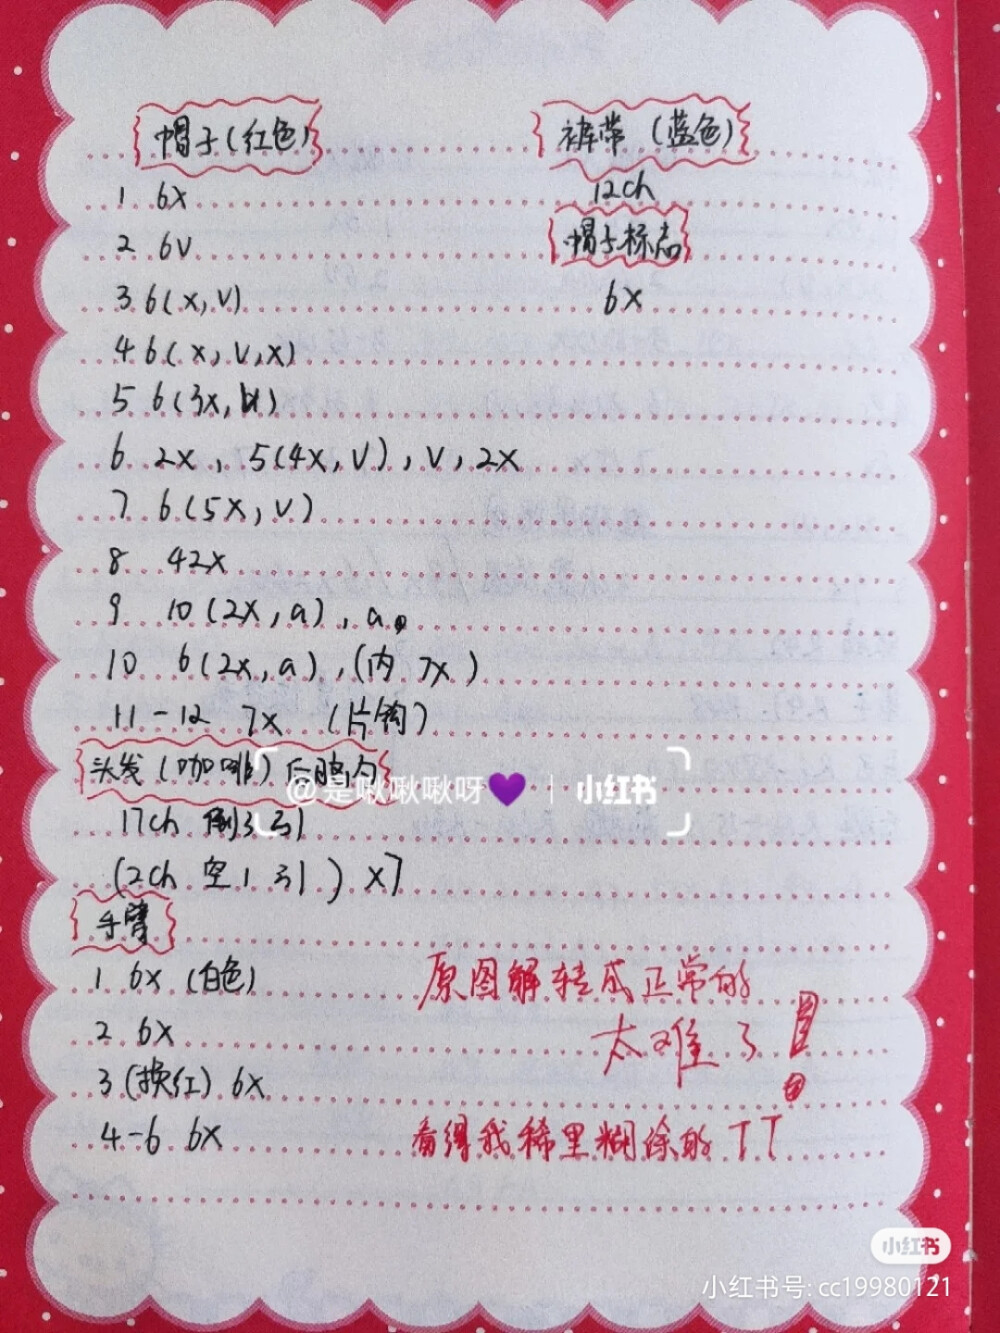 帽子(红色)
1 6x
2 6v
3 6(x,v)
4 6(x,v,x)
5 6(3x,v)
6 2x,5(4x,v),v,2x
7 6(5x,v)
8 42x
9 10(2x,a),a
10 6(2x,a),(内7x)
11-12 7x (片钩)
头发(咖啡)后脑勺
17ch 倒3引
(2ch 空1引)x7
手臂
1 6x (白色)
2 6x
3 (换红) 6x
4-6 6x
裤带(蓝色)
12ch
帽子标志
6x
原图解转成正常的
太难了!
看得我稀里糊涂的TT
@是啾啾啾呀💜 | 小红书
小红书
小红书号: cc19980121